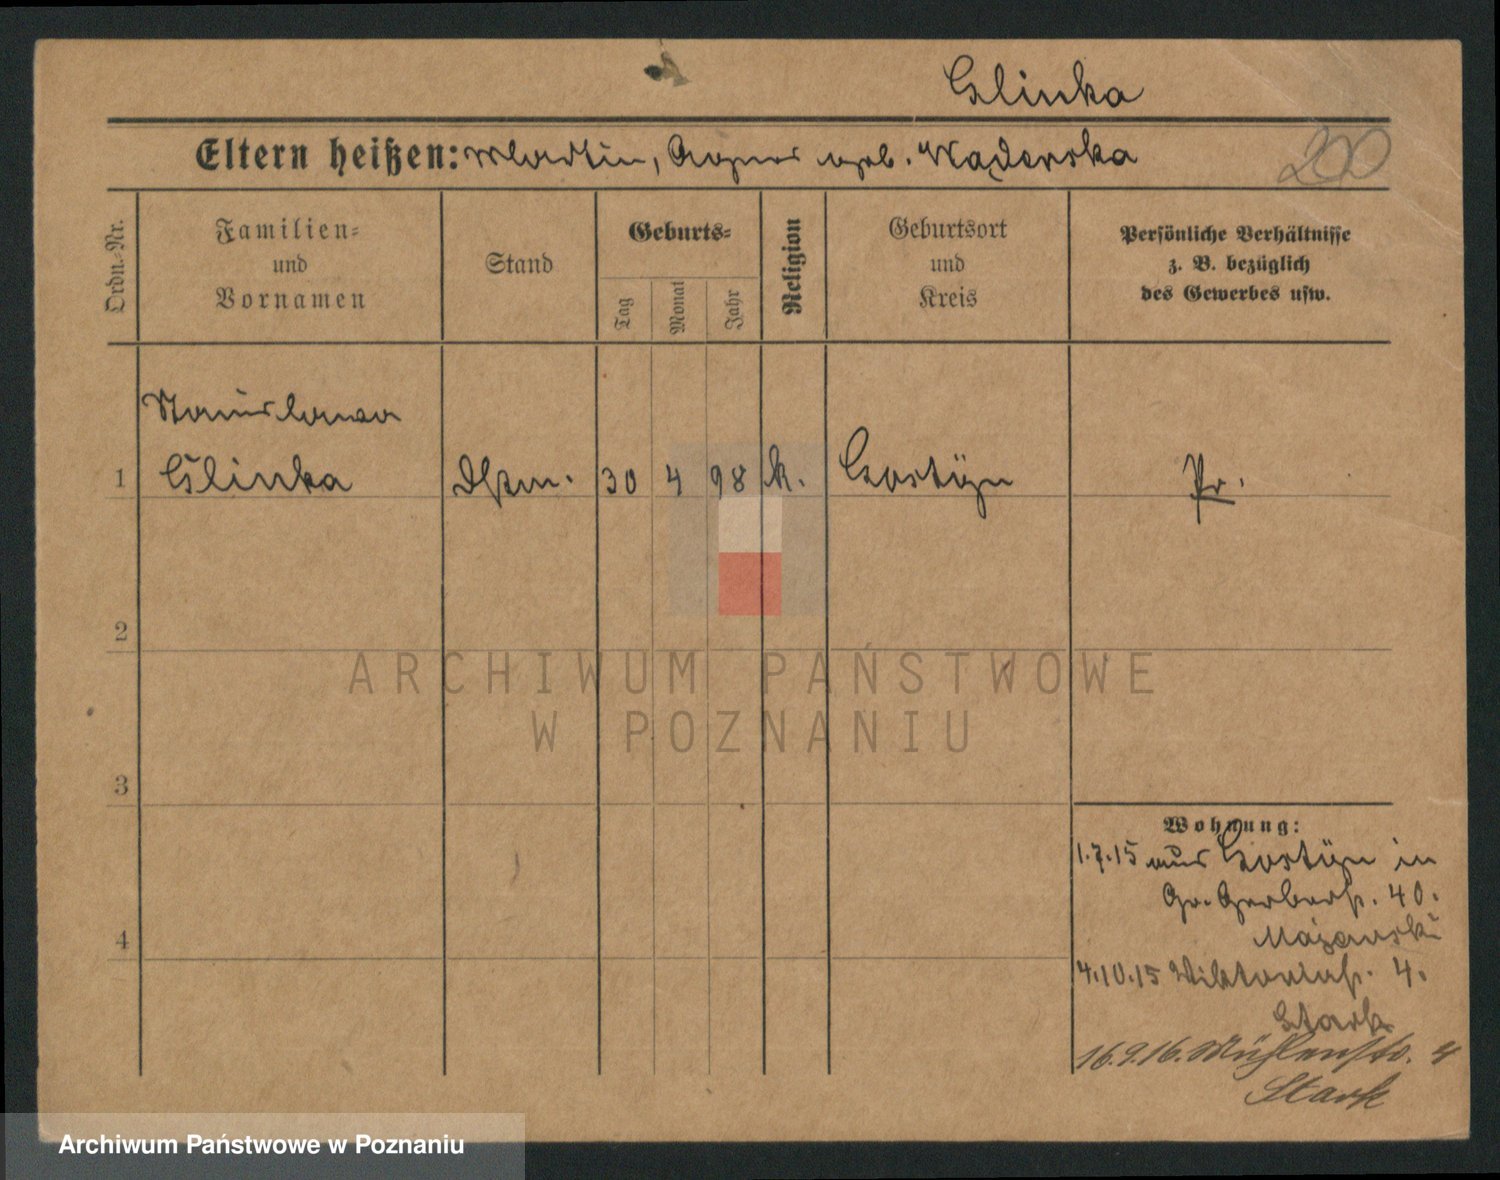 Glinka
Eltern heißen: Martin, Agnes geb. Wąderska
200
Ordn.-Nr.
Familien-
und
Vornamen
Stand
Geburts-
Tag
Monat
Jahr
Religion
Geburtsort
und
Kreis
Persönliche Verhältnisse
z. B. bezüglich
des Gewerbes usw.
Stanislawa
1 Glinka Dstm. 30 4 98 k. Gostyn Pr.
2
3
4
Wohnung:
1.7.15 aus Gostyn in
Gr. Gerberst. 40.
Mazanski
4.10.15 Viktoriast. 4.
Stark
16.9.16. Mühlenstr. 4
Stark
ARCHIWUM PAŃSTWOWE
W POZNANIU
Archiwum Państwowe w Poznaniu